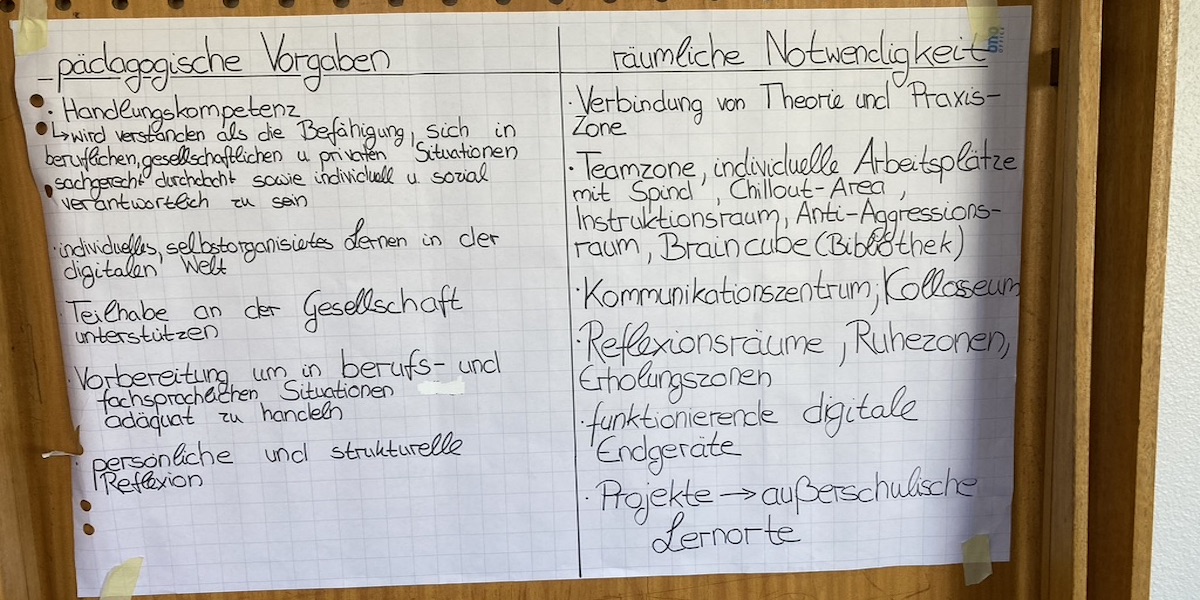 pädagogische Vorgaben
· Handlungskompetenz
↳ wird verstanden als die Befähigung, sich in
beruflichen, gesellschaftlichen u privaten Situationen
sachgerecht durchdacht sowie individuell u sozial
verantwortlich zu sein
· individuelles, selbstorganisiertes Lernen in der
digitalen Welt
· Teilhabe an der Gesellschaft
unterstützen
· Vorbereitung um in berufs- und
fachsprachlichen Situationen
adäquat zu handeln
· persönliche und strukturelle
Reflexion
räumliche Notwendigkeit
· Verbindung von Theorie und Praxis-
Zone
· Teamzone, individuelle Arbeitsplätze
mit Spind, Chillout-Area,
Instruktionsraum, Anti-Aggressions-
raum, Braincube (Bibliothek)
· Kommunikationszentrum, Kollosseum
· Reflexionsräume, Ruhezonen,
Erholungszonen
· funktionierende digitale
Endgeräte
· Projekte → außerschulische
Lernorte